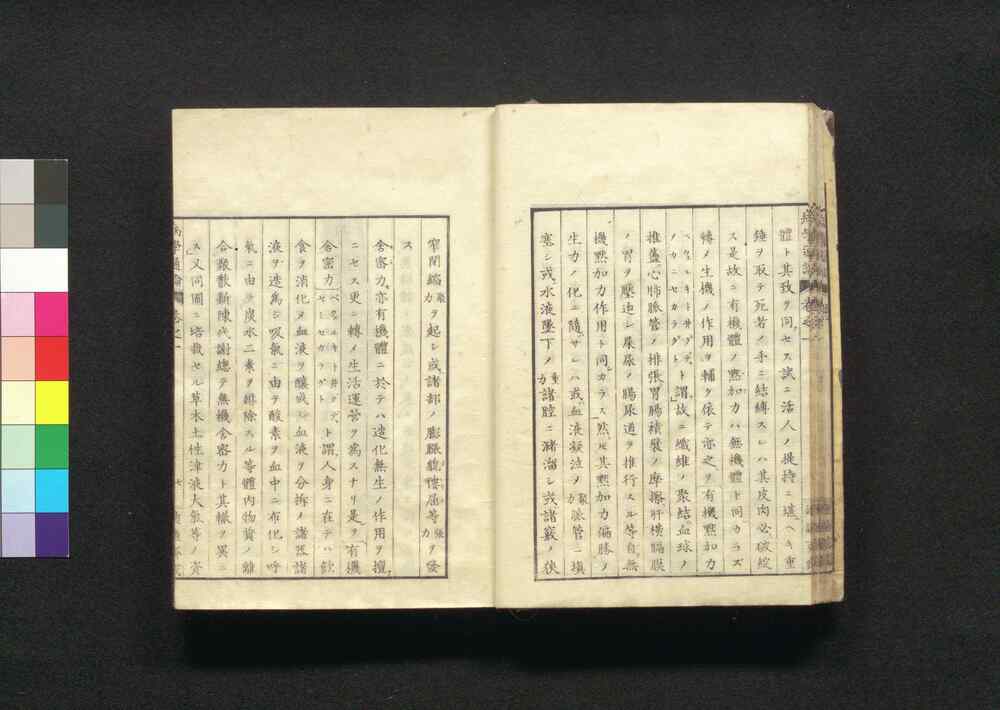 體ト其致ヲ同セス試ニ活人ノ提持ニ堪ヘキ重
錘ヲ取テ死者ノ手ニ結縛スレハ其皮肉必破綻
ス是故ニ有機體ノ㸃加力ハ無機體ト同カラズ
轉メ生機ノ作用ヲ輔ク依テ亦之ヲ有機㸃加力
ト謂故ニ纖維ノ聚結血球ノ
推盪心肺脈管ノ排張胃腸襀襞ノ摩擦肝横膈膜
ノ胃ヲ壓迫シ屎尿ノ腸尿道ヲ推行スル等自無
機㸃加力作用ト同カラス然𪜈其㸃加力偏勝ノ
生力ノ化ニ隨サレハ或血液凝泣ヲ聚力脈管ニ填
塞シ或水液墜下ノ重力諸腔ニ瀦溜シ或諸竅ノ狹
窄閉縮聚力ヲ起シ或諸部ノ膨脹
ス
舍密力亦有機體ニ於テハ造化無生ノ作用ヲ擅
ニセス更ニ轉メ生活運營ヲ爲スナリ是ヲ有機
舍密力ト謂人身ニ在テハ飲
食ヲ消化ヌ血液ヲ釀成シ血液ヲ分拆メ諸器諸
液ヲ造爲シ吸氣ニ由テ酸素ヲ血中ニ布化シ呼
氣ニ由テ炭水二素ヲ排除スル等體内物質ノ離
合聚散新陳代謝總テ無機舍密力ト其轍ヲ異ニ
ス又同圃ニ培栽セル草木土性津液大氣等ノ資